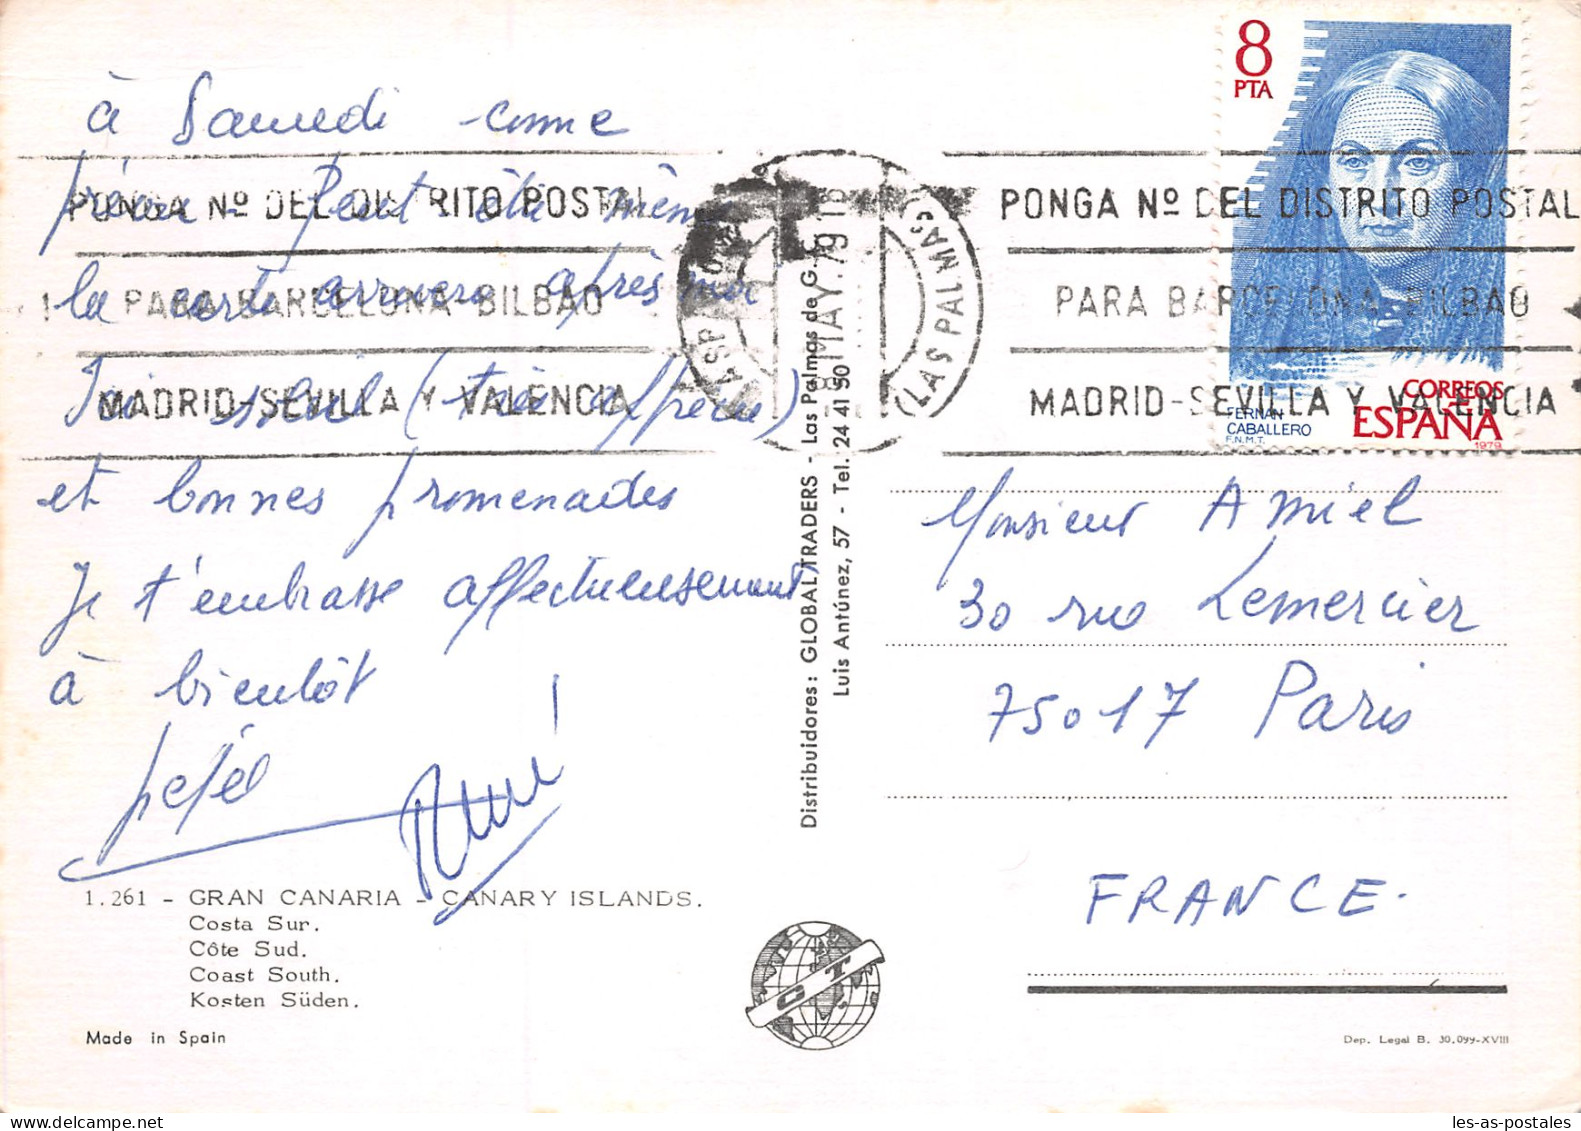 à Samedi comme
prévu - Peut être même
la carte arrivera après moi
J'ai soleil (très apprécié)
et bonnes promenades
Je t'embrasse affectueusement
à bientôt
1.261 - GRAN CANARIA - CANARY ISLANDS.
Costa Sur.
Côte Sud.
Coast South.
Kosten Süden.
Made in Spain
PONGA Nº DEL DISTRITO POSTAL
PARA BARCELONA-BILBAO
MADRID-SEVILLA Y VALENCIA
LAS PALMAS
8 MAY. 79
Distribuidores: GLOBAL TRADERS - Las Palmas de G. C.
Luis Antúnez, 57 - Tel. 24 41 50
GT
PONGA Nº DEL DISTRITO POSTAL
PARA BARCELONA-BILBAO
MADRID-SEVILLA Y VALENCIA
8
PTA
FERNAN
CABALLERO
F.N.M.T.
CORREOS
ESPAÑA
1979
Monsieur Amiel
30 rue Lemercier
75017 Paris
FRANCE.
Dep. Legal B. 30.099-XVIII
les-as-postales